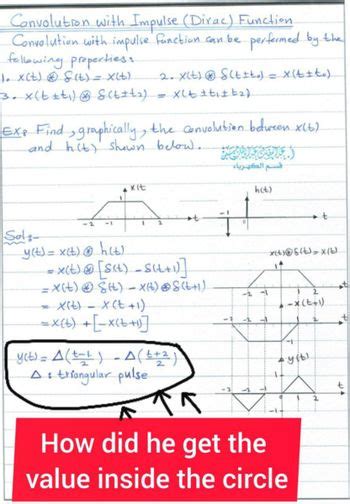 Convolution with Impulse (Dirac) Function
Convolution with impulse function can be performed by the
following properties:
1. x(t) ⊛ δ(t) = x(t) 2. x(t) ⊛ δ(t±t₀) = x(t±t₀)
3. x(t±t₁) ⊛ δ(t±t₂) = x(t±t₁±t₂)
Ex: Find, graphically, the convolution between x(t)
and h(t) shown below.
قسم الكهرباء
x(t
1
-2 -1 1 2 t
h(t)
-1 t
Sol:-
y(t) = x(t) ⊛ h(t)
= x(t) ⊛ [δ(t) - δ(t+1)]
= x(t) ⊛ δ(t) - x(t) ⊛ δ(t+1)
= x(t) - x(t+1)
= x(t) + [-x(t+1)]
x(t)⊛δ(t)=x(t)
1
-2 -1 1 2 t
-x(t+1)
-3 -2 -1 1 2 t
-1
y(t) = Δ(t-1/2) - Δ(t+2/2)
Δ : triangular pulse
y(t)
1
-3 -2 -1 1 2 t
-1
How did he get the
value inside the circle